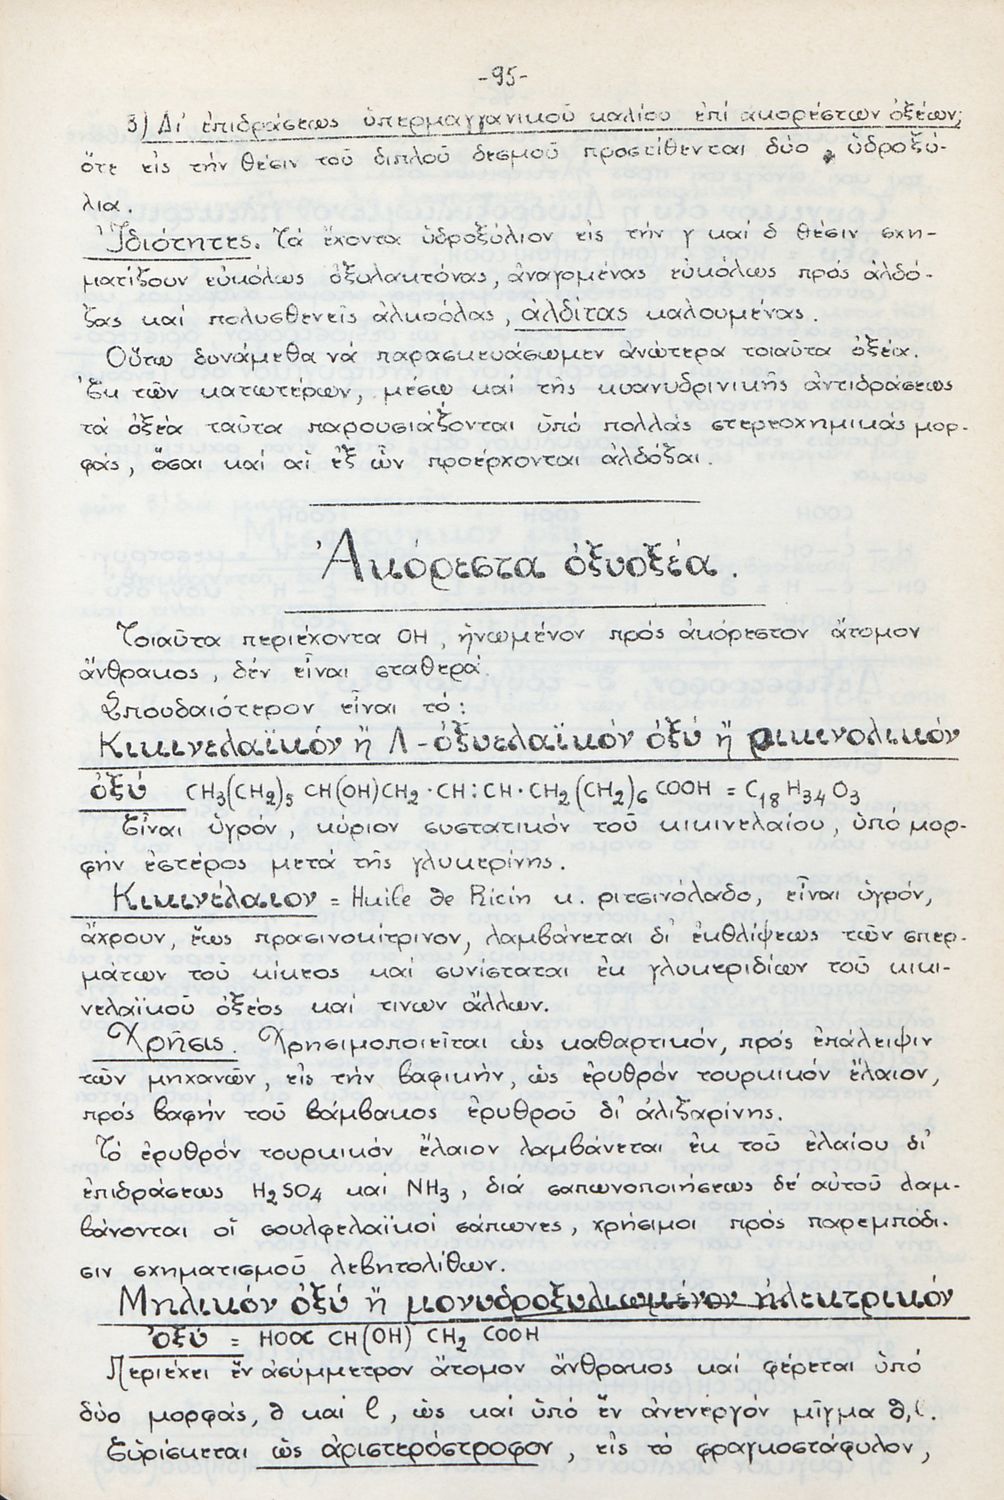 -95-
3) Δι' ἐπιδράσεως ὑπερμαγγανικοῦ καλίου ἐπί ἀκορέστων ὀξέων,
ὅτε εἰς τήν θέσιν τοῦ διπλοῦ δεσμοῦ προστίθενται δύο ὑδροξύ-
λια.
Ἰδιότητες. Τά ἔχοντα ὑδροξύλιον εἰς τήν γ καί δ θέσιν σχη-
ματίζουν εὐκόλως ὀξυλακτόνας, ἀναγομένας εὐκόλως πρός ἀλδό-
ζας καί πολυσθενεῖς ἀλκοόλας, ἀλδίτας καλουμένας.
Οὕτω δυνάμεθα νά παρασκευάσωμεν ἀνώτερα τοιαῦτα ὀξέα.
Ἐκ τῶν κατωτέρων, μέσω καί τῆς κυανυδρινικῆς ἀντιδράσεως
τά ὀξέα ταῦτα παρουσιάζονται ὑπό πολλάς στερεοχημικάς μορ-
φάς, ὅσαι καί αἱ ἐξ ὧν προέρχονται ἀλδόζαι.
Ἀκόρεστα ὀξυοξέα.
Τοιαῦτα περιέχοντα OH, ἡνωμένον πρός ἀκόρεστον ἄτομον
ἄνθρακος, δέν εἶναι σταθερά.
Σπουδαιότερον εἶναι τό:
Κικινελαϊκόν ἤ Λ-ὀξυελαϊκόν ὀξύ ἤ ρικινολικόν
ὀξύ CH3(CH2)5 CH(OH)CH2·CH:CH·CH2(CH2)6 COOH = C18 H34 O3
Εἶναι ὑγρόν, κύριον συστατικόν τοῦ κικινελαίου, ὑπό μορ-
φήν ἐστέρος μετά τῆς γλυκερίνης.
Κικινέλαιον = Huile de Ricin κ. ριτσινόλαδο, εἶναι ὑγρόν,
ἄχρουν, ἕως πρασινοκίτρινον, λαμβάνεται δι' ἐκθλίψεως τῶν σπερ-
μάτων τοῦ κίκεος καί συνίσταται ἐκ γλυκεριδίων τοῦ κικι-
νελαϊκοῦ ὀξέος καί τινων ἄλλων.
Χρῆσις. Χρησιμοποιεῖται ὡς καθαρτικόν, πρός ἐπάλειψιν
τῶν μηχανῶν, εἰς τήν βαφικήν, ὡς ἐρυθρόν τουρκικόν ἔλαιον,
πρός βαφήν τοῦ βάμβακος ἐρυθροῦ δι' ἀλιζαρίνης.
Τό ἐρυθρόν τουρκικόν ἔλαιον λαμβάνεται ἐκ τοῦ ἐλαίου δι'
ἐπιδράσεως H2SO4 καί NH3, διά σαπωνοποιήσεως δέ αὐτοῦ λαμ-
βάνονται οἱ σουλφελαϊκοί σάπωνες, χρήσιμοι πρός παρεμπόδι-
σιν σχηματισμοῦ λεβητολίθων.
Μηλικόν ὀξύ ἤ μονυδροξυλιωμένον ἠλεκτρικόν
ὀξύ = HOOC CH(OH) CH2 COOH
Περιέχει ἕν ἀσύμμετρον ἄτομον ἄνθρακος καί φέρεται ὑπό
δύο μορφάς, d καί l, ὡς καί ὑπό ἕν ἀνενεργόν μῖγμα d,l.
Εὑρίσκεται ὡς ἀριστερόστροφον, εἰς τό φραγκοστάφυλον,